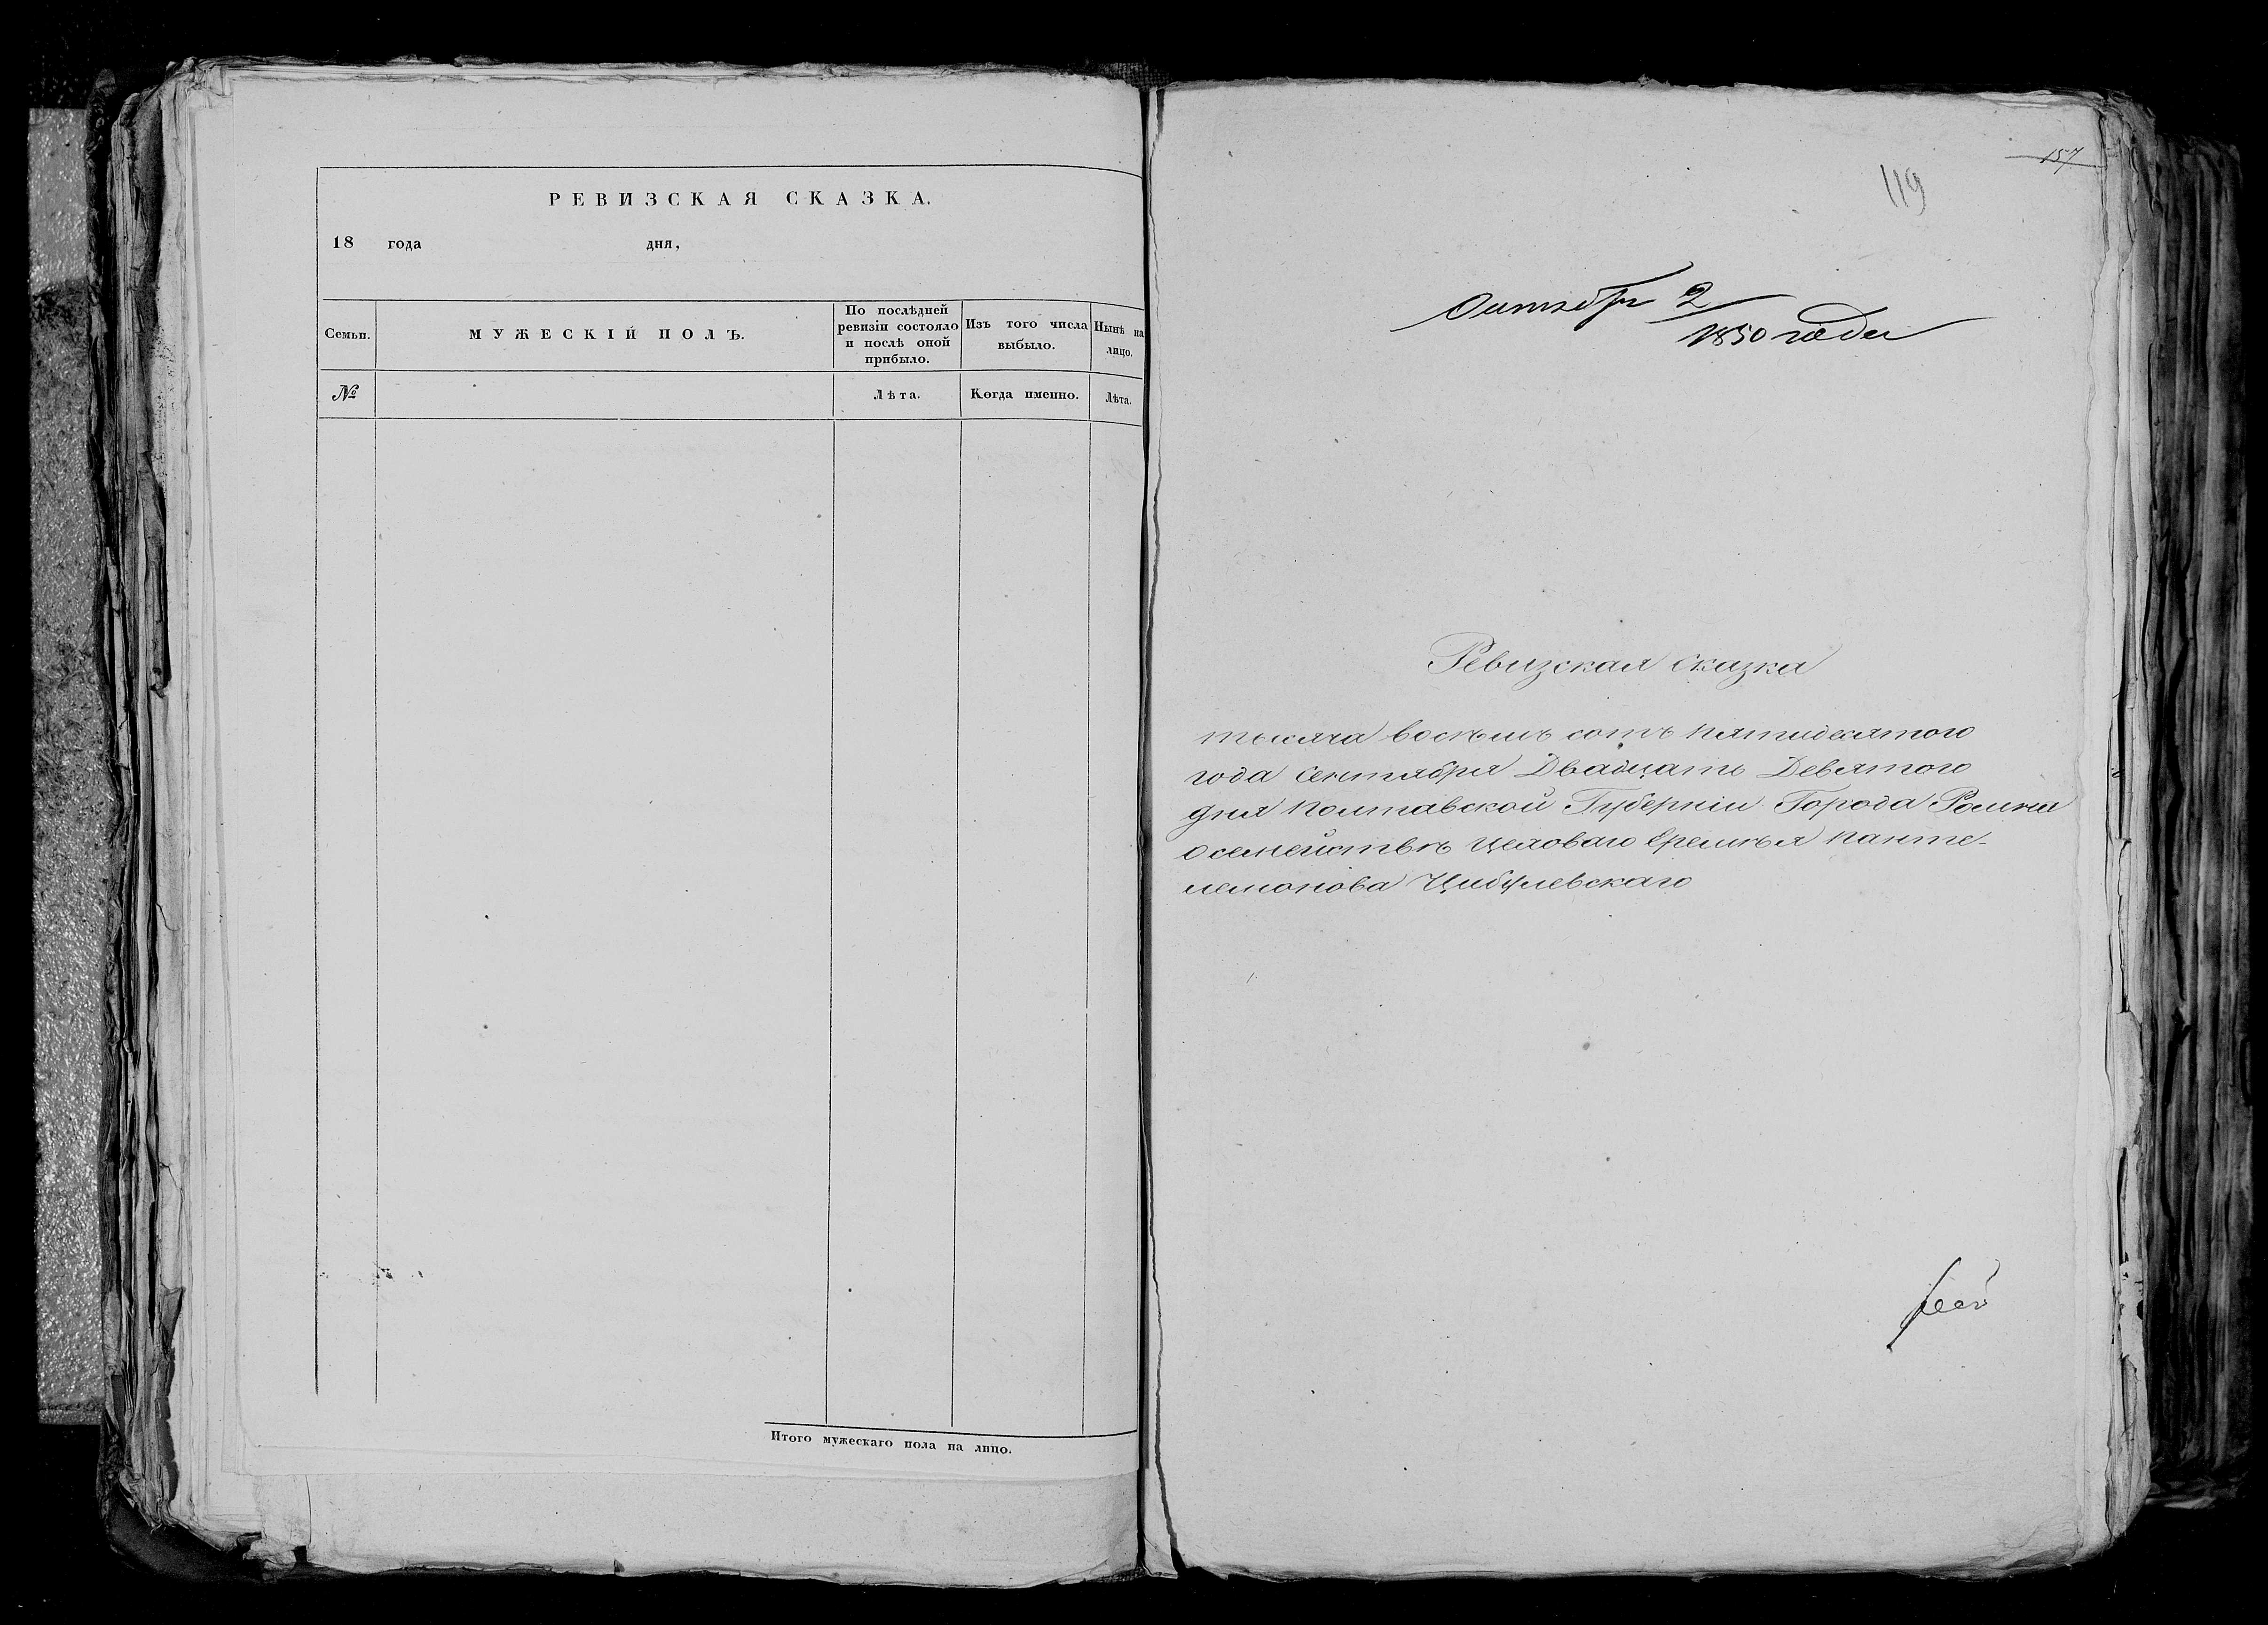 РЕВИЗСКАЯ СКАЗКА.
18 года дня,
Семьи.
МУЖЕСКІЙ ПОЛЪ.
По послѣдней
ревизіи состояло
и послѣ оной
прибыло.
Изъ того числа
выбыло.
Нынѣ на
лицо.
№
Лѣта.
Когда именно.
Лѣта.
Итого мужескаго пола на лицо.
157
119
Октября 2
1850 года
Ревизская сказка
тысяча восемь сотъ пятидесятого
года Сентября Двадцать Девятого
дня Полтавской Губерніи Города Ромна
о семействѣ цеховаго Еремѣя Панте-
лемонова Цибулевскаго